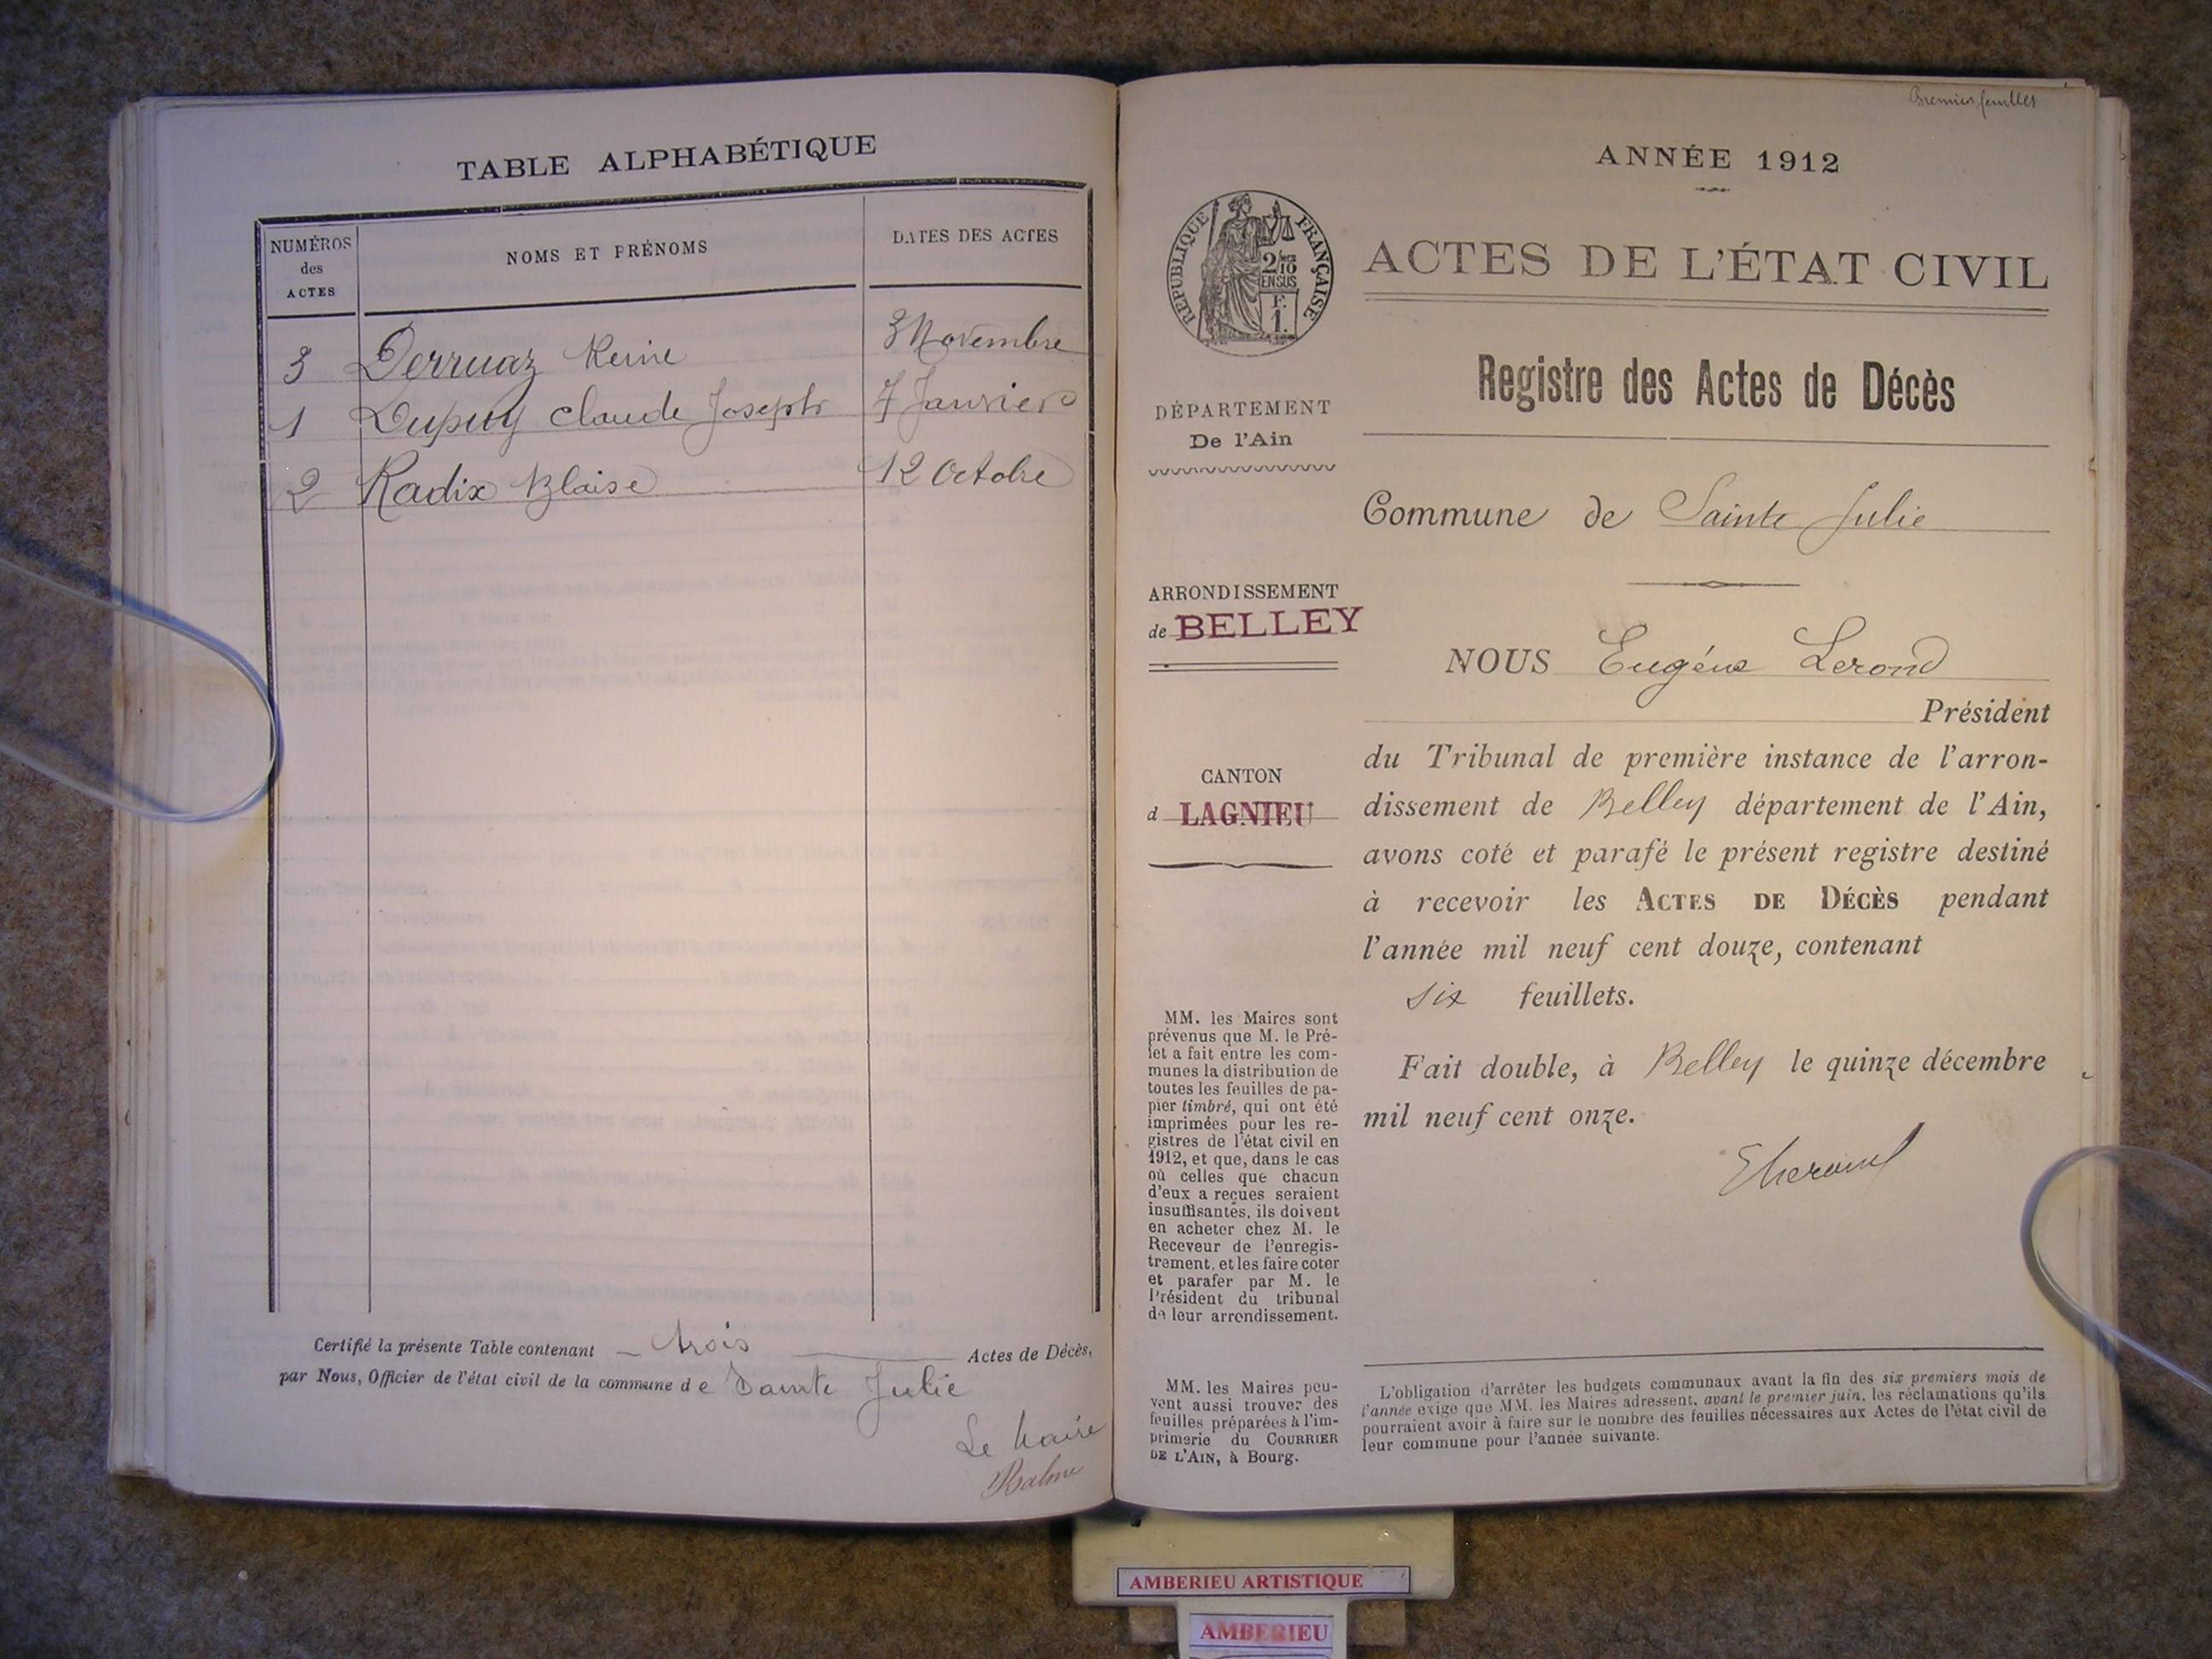 TABLE ALPHABÉTIQUE
NUMÉROS
des
ACTES
NOMS ET PRÉNOMS
DATES DES ACTES
3 Derruaz Reine 3 Novembre
1 Dupuy Claude Joseph 7 Janvier
2 Radix Blaise 12 Octobre
Certifié la présente Table contenant trois Actes de Décès,
par Nous, Officier de l'état civil de la commune de Sainte Julie
Le Maire
Balme
Premier feuillet
ANNÉE 1912
RÉPUBLIQUE FRANÇAISE
2/10
EN SUS
F.
1.
ACTES DE L'ÉTAT CIVIL
Registre des Actes de Décès
DÉPARTEMENT
De l'Ain
Commune de Sainte Julie
ARRONDISSEMENT
de BELLEY
NOUS Eugène Lerond
Président
du Tribunal de première instance de l'arron-
dissement de Belley département de l'Ain,
avons coté et parafé le présent registre destiné
à recevoir les ACTES DE DÉCÈS pendant
l'année mil neuf cent douze, contenant
six feuillets.
Fait double, à Belley le quinze décembre
mil neuf cent onze.
CANTON
d LAGNIEU
MM. les Maires sont
prévenus que M. le Pré-
fet a fait entre les com-
munes la distribution de
toutes les feuilles de pa-
pier timbré, qui ont été
imprimées pour les re-
gistres de l'état civil en
1912, et que, dans le cas
où celles que chacun
d'eux a reçues seraient
insuffisantes, ils doivent
en acheter chez M. le
Receveur de l'enregis-
trement, et les faire coter
et parafer par M. le
Président du tribunal
de leur arrondissement.
MM. les Maires peu-
vent aussi trouver des
feuilles préparées à l'im-
primerie du COURRIER
DE L'AIN, à Bourg.
L'obligation d'arrêter les budgets communaux avant la fin des six premiers mois de
l'année exige que MM. les Maires adressent, avant le premier juin, les réclamations qu'ils
pourraient avoir à faire sur le nombre des feuilles nécessaires aux Actes de l'état civil de
leur commune pour l'année suivante.
AMBERIEU ARTISTIQUE
AMBERIEU